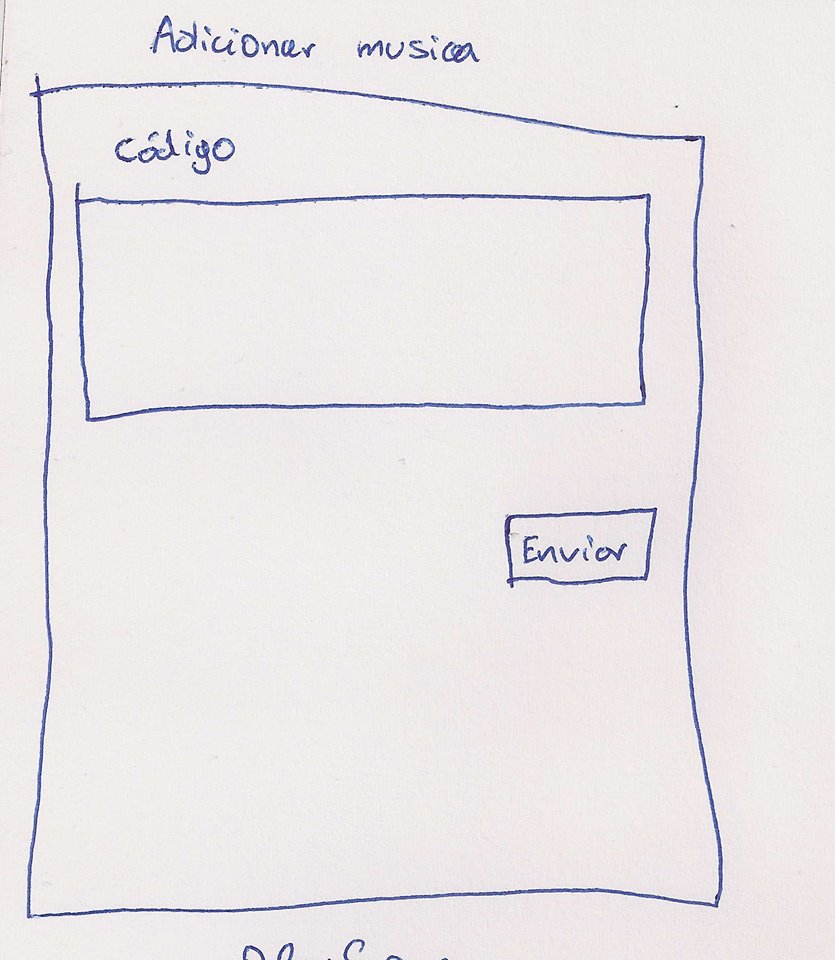 Adicionar musica
Código
Enviar